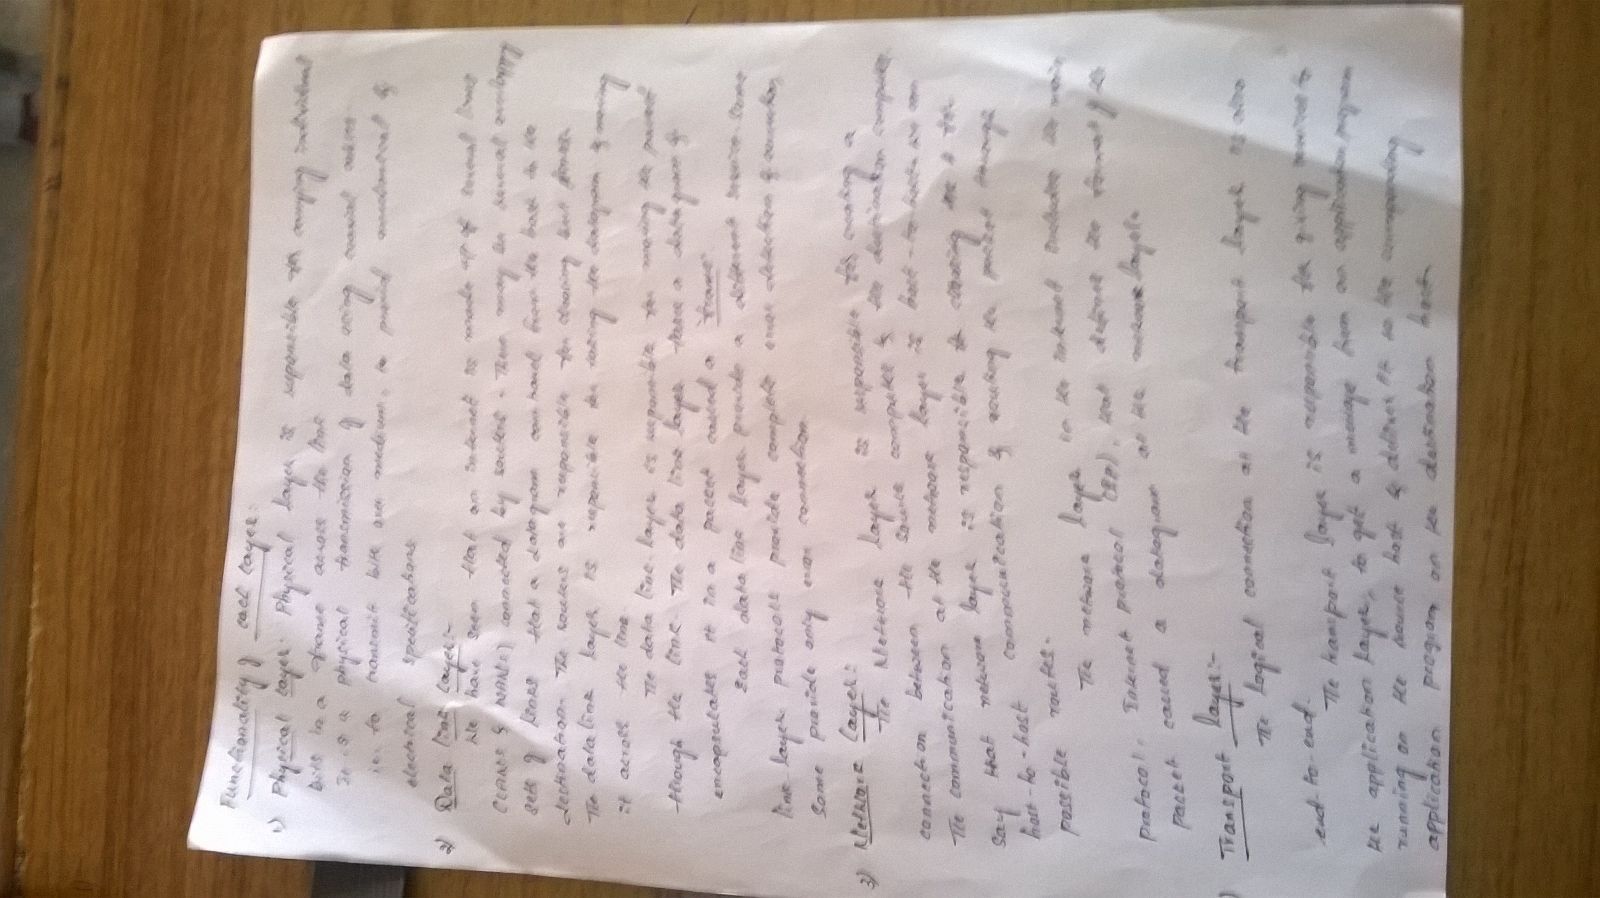 Functionality of each layer:
1) Physical layer: Physical layer is responsible for carrying individual
bits in a frame across the link
It is a physical transmission of data using coaxial
i.e. to transmit bits over medium, to provid mechanical &
electrical specifications
2) Data link layer:-
We have seen that an internet is made up of several links
(LANs & WANs) connected by routers. There may be several overlapping
sets of links that a datagram can travel from the host to the
destination. The routers are responsible for choosing best
The data link layer is responsible for taking the datagram & moving
it across the link.
The data link layer is responsible for moving the packet
through the link. The data link layer takes a datagram &
encapsulates it in a packet called a "frame".
Each data link layer provide a different service. Some
link-layer protocols provide complete error detection & correction,
some provide only error correction
3) Network layer:
The Network layer is responsible for creating a
connection between the source computer & the destination computer.
The communication at the network layer is host-to-host. we can
say that network layer is responsible
host-to-host communication & routing the packet through
possible routes.
The network layer in the internet includes the main
protocol, Internet protocol (IP), that defines the format of the
packet called a datagram at the network layer.
) Transport layer:-
The Logical connection at the transport layer is also
end-to-end.
The transport layer is responsible for giving services to
the application layer, to get a message from an application program
running on the source host & deliver it to the corresponding
application program on the destination host.